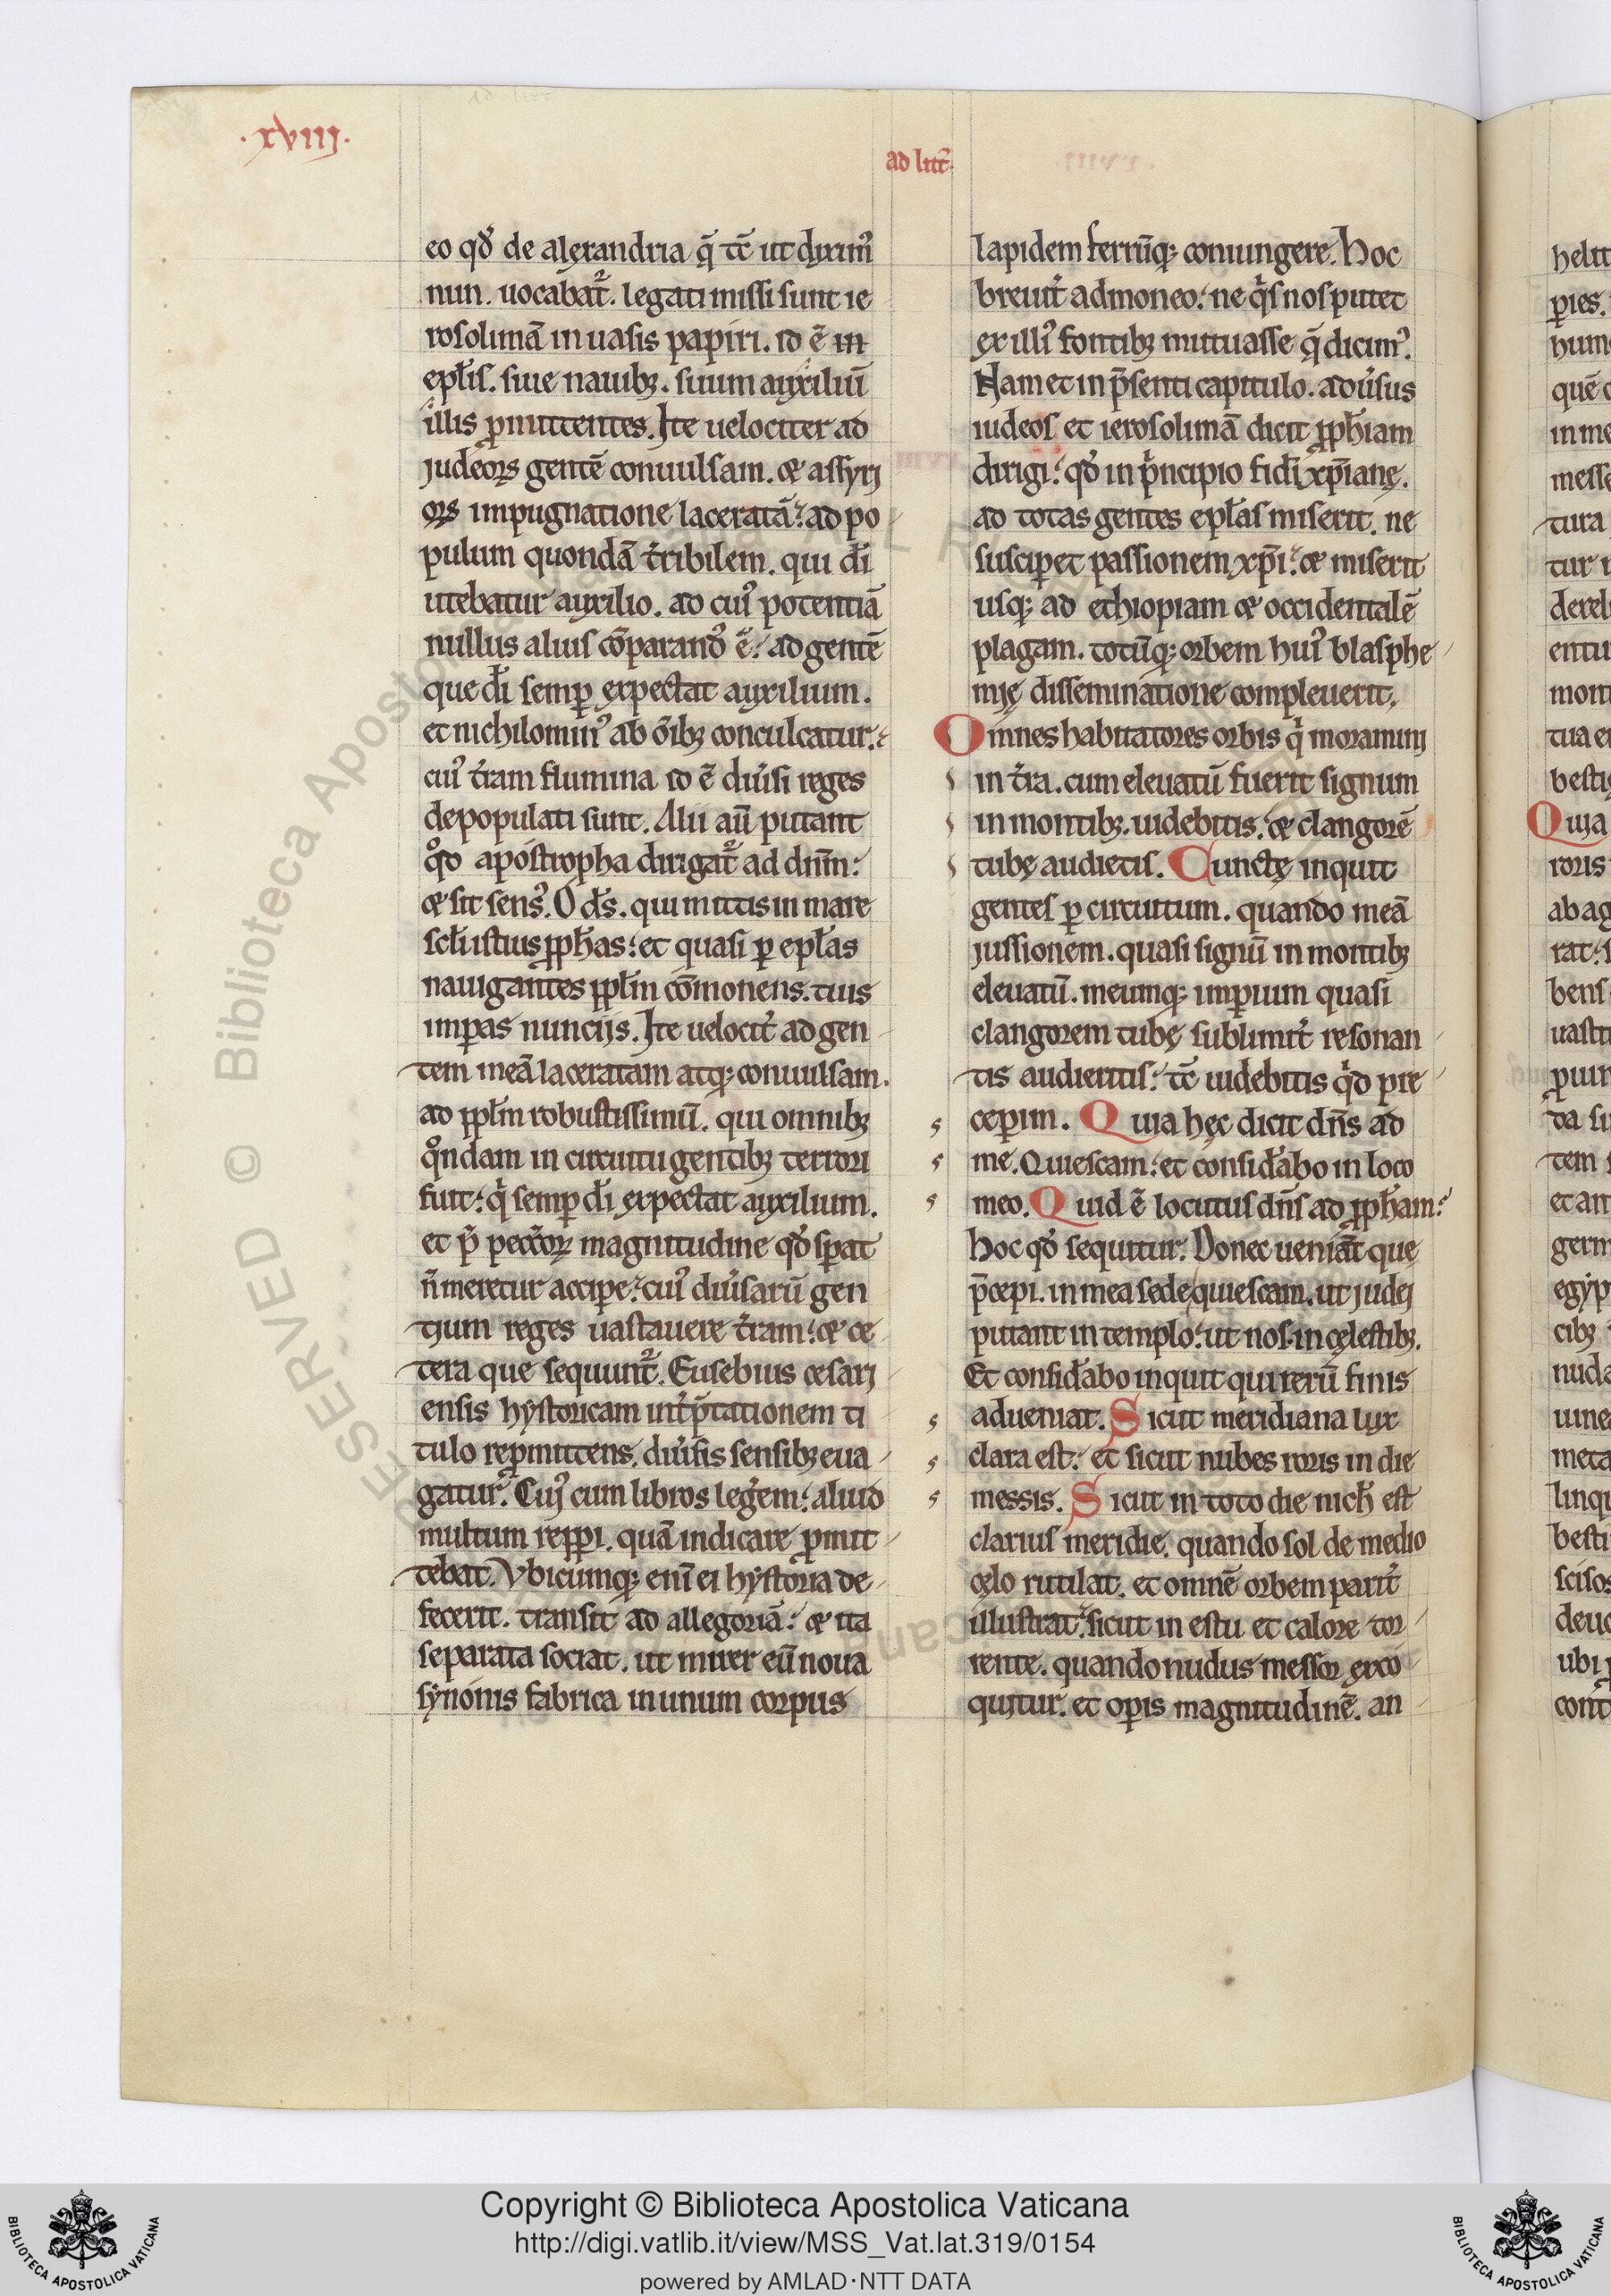 .xviii.
ad litt̃.
eo qđ de alexandria q̃ tc̃ ut diximꝰ
nun. uocabat᷑. legati missi sunt ie
rosolimã in uasis papiri. id ẽ in
epl̃is. siue nauibꝫ. suum auxiliũ
illis ꝓmittentes. Ite uelociter ad
iudeoꝝ gentẽ conuulsam. ⁊ assyrj
oꝝ impugnatione laceratã. ad po
pulum quondã t̃ribilem. qui di̅
utebatur auxilio. ad cuiꝰ potentiã
nullus aliuſ cõparandꝰ ẽ. ad gentẽ
que di̅ semꝑ expectat auxilium.
et nichilominꝰ ab õibꝫ conculcatur.
cuiꝰ t̃ram flumina id ẽ diũsi reges
depopulati sunt. Alii aũ putant
qͦd apostropha dirigat᷑ ad dñm.
⁊ sit sensꝰ. O ds̃. qui mittis in mare
scl̃i istius ꝓph̃as. et quasi ꝑ epl̃as
nauigantes ppl̃m cõmonens. tuis
imꝑas nuncijs. Ite uelocit̃ ad gen
tem meã laceratam atqꝫ conuulsam.
ad ppl̃m robustissimũ. qui omnibꝫ
qͦndam in circuitu gentibꝫ terrori
fuit. qͥ semꝑ di̅ expectat auxilium.
et p̃ pecc̃oꝝ magnitudine qđ sꝑat
ñ meretur acciꝑe. cuiꝰ diũsarũ gen
tium reges uastauere t̃ram. ⁊ ce
tera que sequunt᷑. Eusebius cesarj
ensis hystoricam int̃p̃tationem ti
tulo reꝓmittens. diũsis sensibꝫ eua
gatur. Cuiꝰ cum libros leg̃em. aliud
multum repꝑi. quã indicare ꝓmit
tebat. Vbicumqꝫ eni̅ ei hystoria de
fecerit. transit ad allegoriã. ⁊ ita
separata sociat. ut mirer eũ noua
synonis fabrica in unum corpus
lapidem ferrũqꝫ coniungere. Hoc
breuit̃ admoneo. ne qͥs nos putet
ex illiꝰ fontibꝫ mutuasse q̃ dicimꝰ.
Nam et in p̃senti capitulo. aduẽsus
iudeos et ierosolimã dicit ꝓph̃iam
dirigi. qđ in pͥncipio fidei xp̃ianę.
ad totas gentes epl̃as miserit. ne
susciꝑet passionem xp̃i. ⁊ miserit
usqꝫ ad ethiopiam ⁊ occidentalẽ
plagam. totũqꝫ orbem huiꝰ blasphe
mię disseminatione compleuerit.
Omnes habitatores orbis qͥ moramini
in t̃ra. cum eleuatũ fuerit signum
in montibꝫ. uidebitis. ⁊ clangorẽ
tubę audietis. Cunctę inquit
gentes ꝑ circuitum. quando meã
iussionem. quasi signũ in montibꝫ
eleuatũ. meumqꝫ imꝑium quasi
clangorem tubę sublimit̃ resonan
tis audieritis. tc̃ uidebitis qͥd pre
ceꝑim. Quia hęc dicit dñs ad
me. Quiescam. et consid̃abo in loco
meo. Quid ẽ locutus dñs ad ꝓph̃am.
hoc qđ sequitur. Donec ueniãt que
p̃cepi. in mea sede quiescam. ut iudej
putant in templo. ut nos. in cęlestibꝫ.
Et consid̃abo inquit qui rerũ finis
adueniat. Sicut meridiana lux
clara est. et sicut nubes roris in die
messis. Sicut in toto die nich̃ est
clarius meridie. quando sol de medio
cęlo rutilat. et omnẽ orbem parit̃
illustrat. sicut in estu et calore tor
rente. quando nudus messor exco
quitur. et oꝑis magnitudinẽ. an
Copyright © Biblioteca Apostolica Vaticana
http://digi.vatlib.it/view/MSS_Vat.lat.319/0154
powered by AMLAD·NTT DATA
BIBLIOTECA APOSTOLICA VATICANA
BIBLIOTECA APOSTOLICA VATICANA